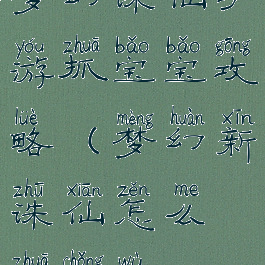 yóu zhuā bǎo bǎo gōng
游抓宝宝攻
lüè mèng huàn xīn
略(梦幻新
zhū xiān zěn me
诛仙怎么
zhuā chǒng wù